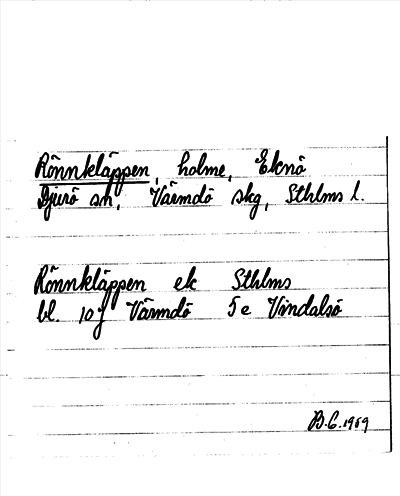 Rönnkläppen, holme, Eknö
Djurö sn, Värmdö skg, Sthlms l.
Rönnkläppen ek Sthlms
bl. 10 J Värmdö 5 e Vindalsö
B.G. 1969